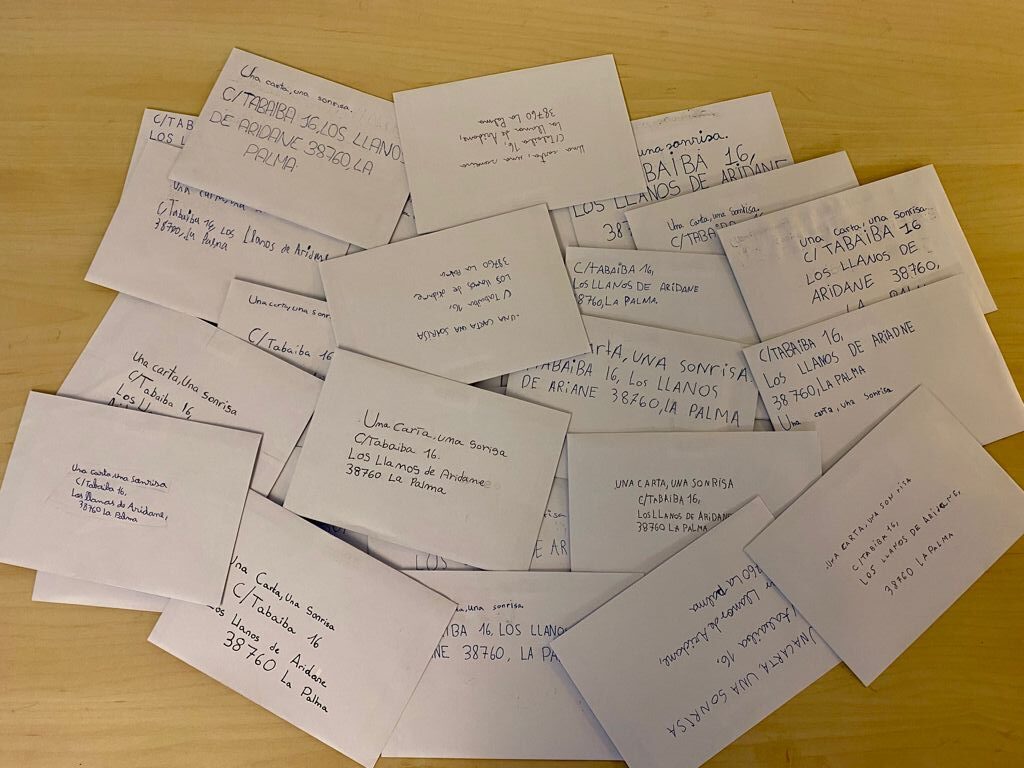 Una carta, una sonrisa.
C/TABAIBA 16, LOS LLANOS
DE ARIDANE 38760, LA
PALMA
Una carta, una sonrisa
C/Tabaiba 16,
Los Llanos de Aridane,
38760 La Palma
C/TAB
LOS LL
una sonrisa.
TABAIBA 16,
LOS LLANOS DE ARIDANE
387
Una carta, una
C/Tabaiba 16, Los Llanos de Aridane
38760, La Palma
Una carta, una sonrisa.
C/TABA
Una carta, una sonrisa.
C/TABAIBA 16
LOS LLANOS DE
ARIDANE 38760,
LA PALM
UNA CARTA UNA SONRISA
C/Tabaiba 16,
Los Llanos de Aridane
38760 La Palma
C/TABAIBA 16,
LOS LLANOS DE ARIDANE
38760, LA PALMA.
Una carta, una sonr
C/Tabaiba 16
CARTA, UNA SONRISA.
TABAIBA 16, LOS LLANOS
DE ARIANE 38760, LA PALMA
C/TABAIBA 16,
LOS LLANOS DE ARIADNE
38760, LA PALMA
Una carta, una sonrisa
Una carta, Una sonrisa
C/Tabaiba 16,
Los Ll
Una Carta, una sorisa
C/Tabaiba 16.
Los Llanos de Aridane
38760 La Palma
Una carta una sonrisa
C/Tabaiba 16,
Los Llanos de Aridane,
38760 La Palma
UNA CARTA, UNA SONRISA
C/TABAIBA 16,
LOS LLANOS DE ARIDANE
38760 LA PALMA
UNA CARTA, UNA SONRISA
C/TABIBA 16,
LOS LLANOS DE ARIDANE,
38760 LA PALMA
LOS
DE AR
Una Carta, Una Sonrisa
C/Tabaiba 16
Los Llanos de Aridane
38760 La Palma
una sonrisa
AIBA 16, LOS LLANO
NE 38760, LA PA
UNA CARTA UNA SONRISA
Tabaiba 16,
Llanos de Aridane,
760 La Palma